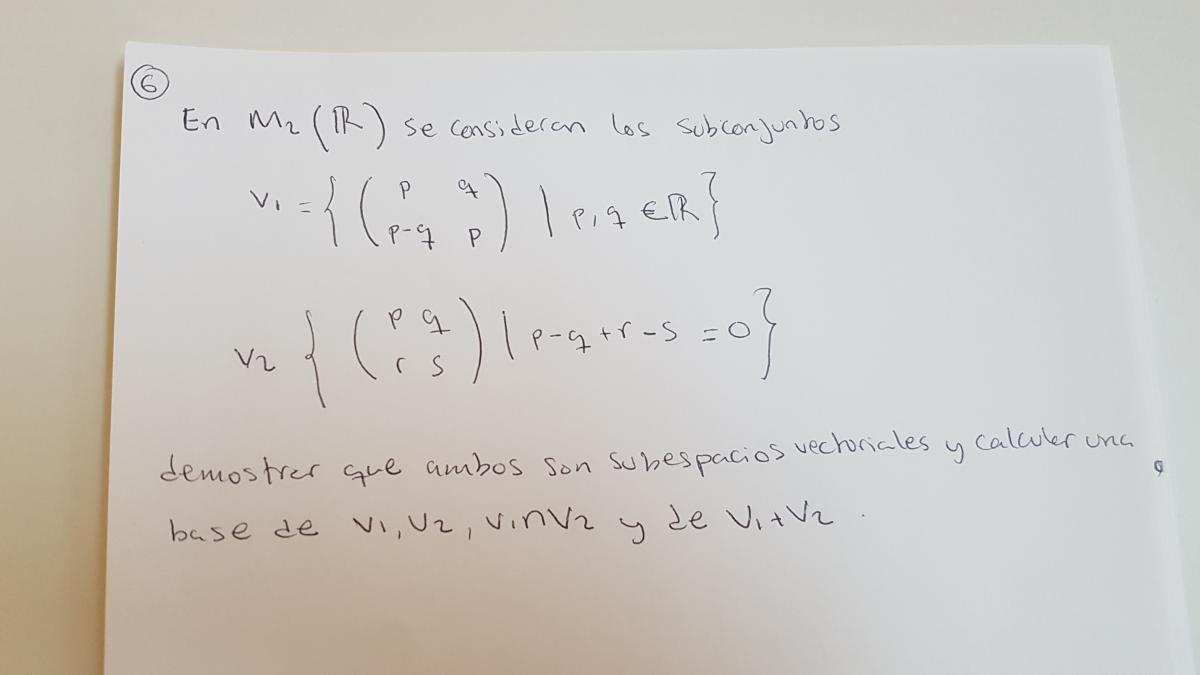 6
En M2 (ℝ) se consideran los subconjuntos
V1 = { ( p q ; p-q p ) | p, q ∈ ℝ }
V2 { ( p q ; r s ) | p - q + r - s = 0 }
demostrar que ambos son subespacios vectoriales y calcular una
base de V1, V2, V1∩V2 y de V1+V2.